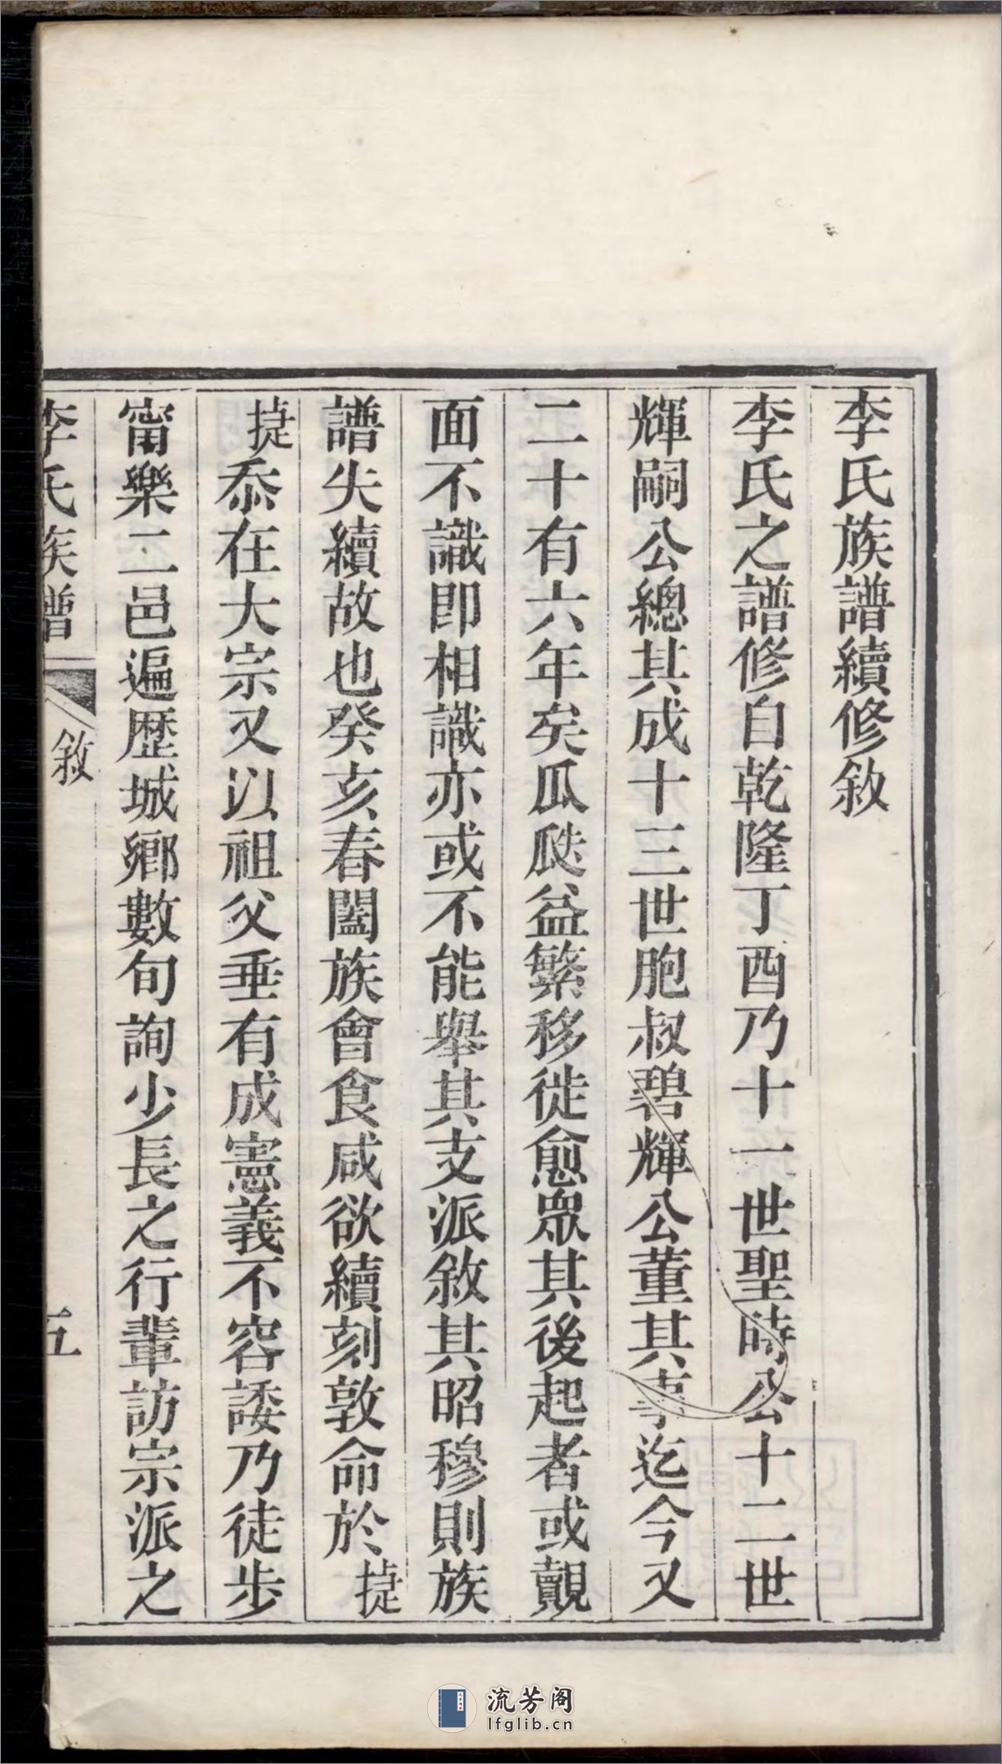 李氏族譜續修敘
李氏之譜修自乾隆丁酉乃十一世聖時公十二世
輝嗣公總其成十三世胞叔碧輝公董其事迄今又
二十有六年矣瓜瓞益繁移徙愈眾其後起者或覿
面不識即相識亦或不能舉其支派敘其昭穆則族
譜失續故也癸亥春闔族會食咸欲續刻敦命於㨗
㨗忝在大宗又以祖父垂有成憲義不容諉乃徒步
甯樂二邑遍歴城鄉數旬詢少長之行輩訪宗派之
李氏族譜 敘 五
流芳阁
lfglib.cn